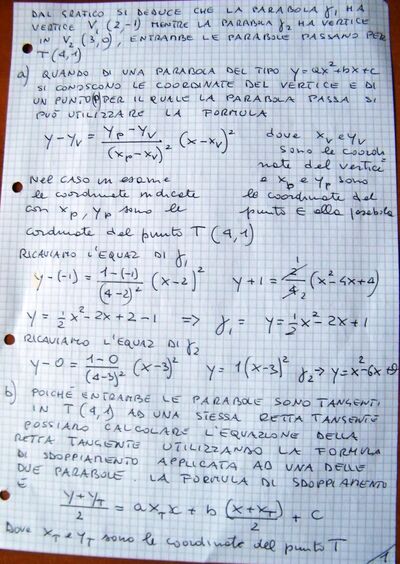 DAL GRAFICO SI DEDUCE CHE LA PARABOLA γ1 HA
VERTICE V1(2,-1) MENTRE LA PARABOLA γ2 HA VERTICE
IN V2(3,0), ENTRAMBE LE PARABOLE PASSANO PER
T(4,1)
a) QUANDO DI UNA PARABOLA DEL TIPO y=ax²+bx+c
SI CONOSCONO LE COORDINATE DEL VERTICE E DI
UN PUNTO P PER IL QUALE LA PARABOLA PASSA SI
PUÒ UTILIZZARE LA FORMULA
y-yV = (yP-yV)/(xP-xV)² (x-xV)² dove xV e yV
sono le coordi
nate del vertice
e xP e yP sono
le coordinate del
punto P ∈ alla parabola
Nel caso in esame
le coordinate indicate
con xP, yP sono le
coordinate del punto T(4,1)
RICAVIAMO L'EQUAZ DI γ1
y-(-1) = (1-(-1))/(4-2)² (x-2)² y+1 = 2/4 2 (x²-4x+4)
y = 1/2 x²-2x+2-1 => γ1 = y = 1/2 x²-2x+1
RICAVIAMO L'EQUAZ DI γ2
y-0 = (1-0)/(4-3)² (x-3)² y = 1(x-3)² γ2 → y = x²-6x+9
b) POICHÉ ENTRAMBE LE PARABOLE SONO TANGENTI
IN T(4,1) AD UNA STESSA RETTA TANGENTE
POSSIAMO CALCOLARE L'EQUAZIONE DELLA
RETTA TANGENTE UTILIZZANDO LA FORMULA
DI SDOPPIAMENTO APPLICATA AD UNA DELLE
DUE PARABOLE. LA FORMULA DI SDOPPIAMENTO
È
(y+yT)/2 = a xT x + b (x+xT)/2 + c
Dove xT e yT sono le coordinate del punto T
1